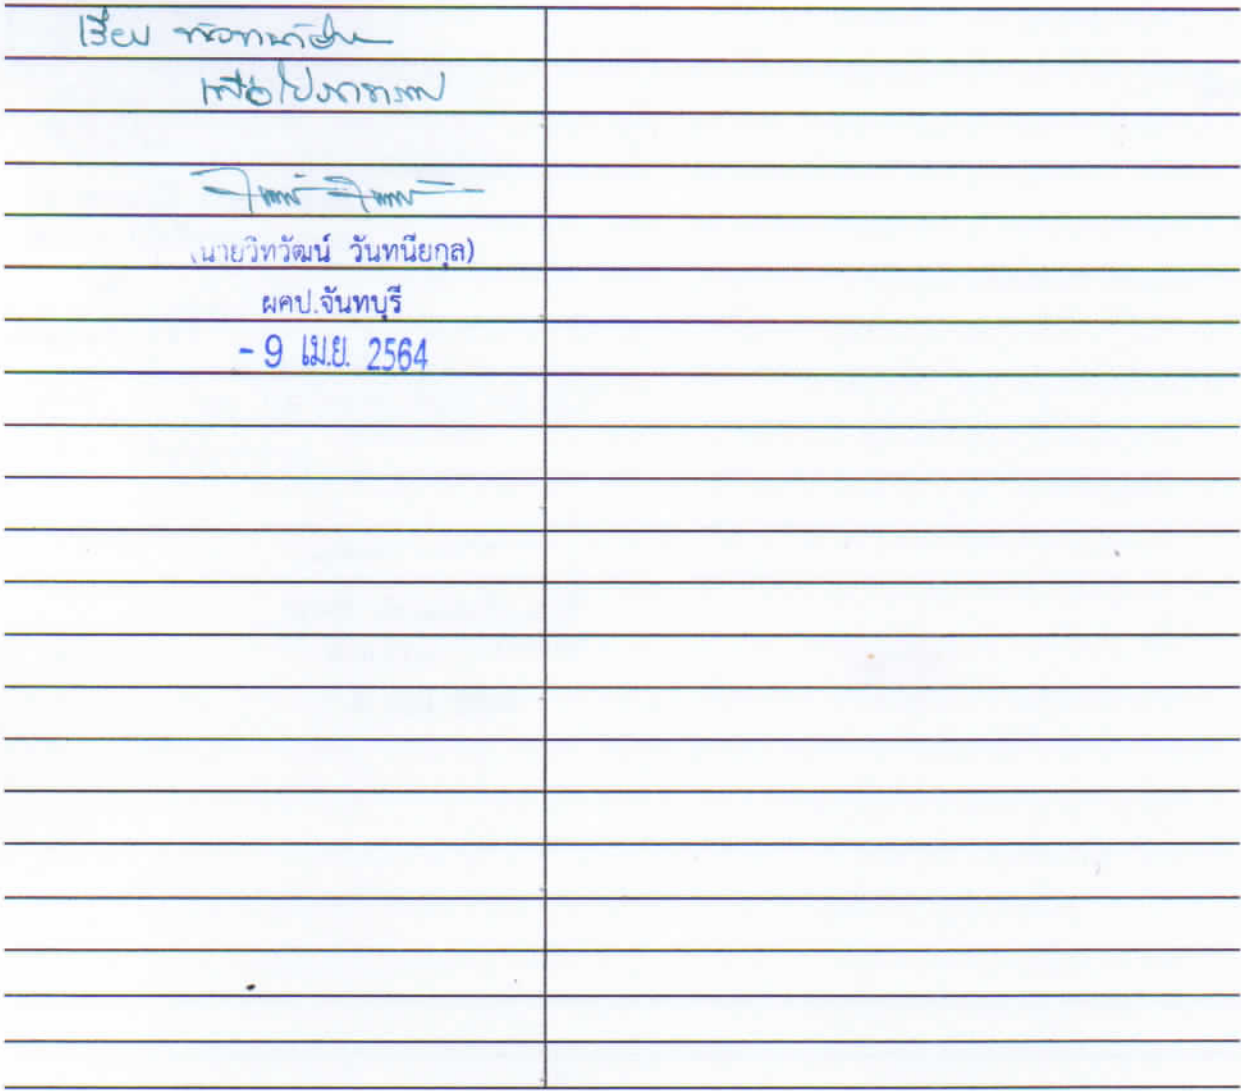 เรียน
เพื่อโปรดทราบ
(นายวิทวัฒน์ วันทนียกุล)
ผคป.จันทบุรี
- 9 เม.ย. 2564